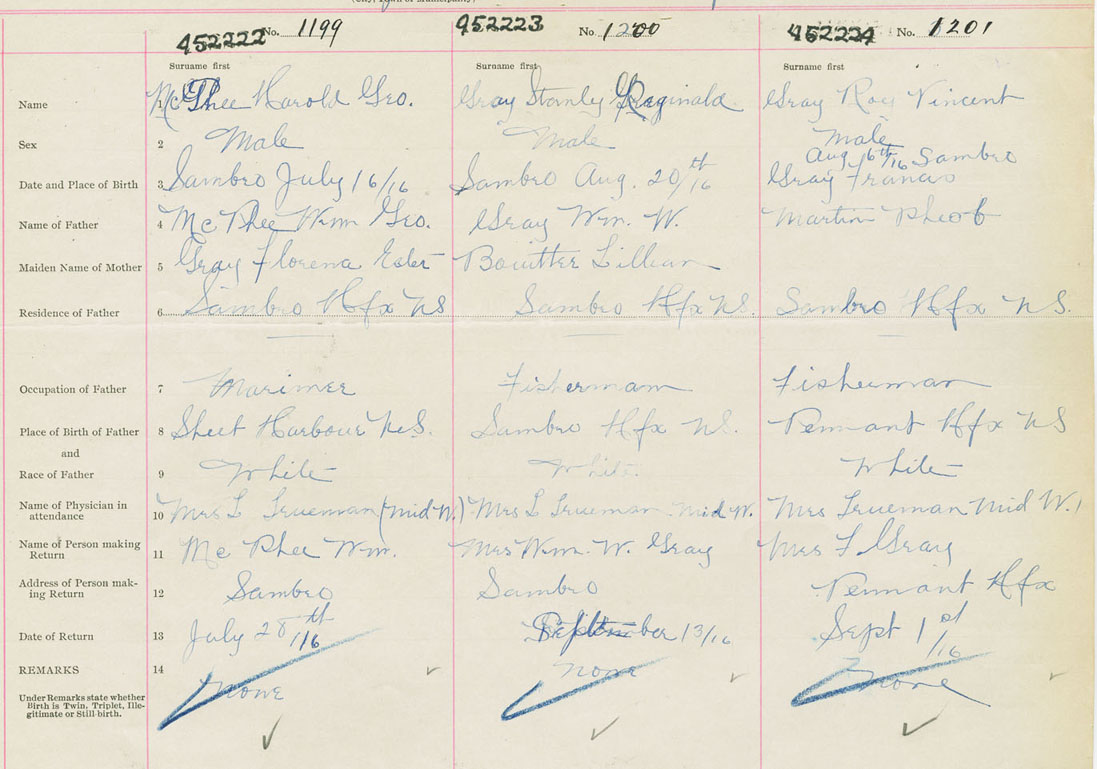 452222 No. 1199 452223 No. 1200 452224 No. 1201
Surname first Surname first Surname first
Name 1 McPhee Harold Geo. Gray Stanly Reginald Gray Roy Vincent
Sex 2 Male Male Male
Aug 6th/16 Sambro
Date and Place of Birth 3 Sambro July 16/16 Sambro Aug. 20th/16 Gray Francis
Name of Father 4 McPhee Wm Geo. Gray Wm. W. Martin Pheob
Maiden Name of Mother 5 Gray Florena Ester Boutter Lillian
Residence of Father 6 Sambro Hfx NS Sambro Hfx NS. Sambro Hfx NS.
Occupation of Father 7 Marimer Fisherman Fisherman
Place of Birth of Father 8 Sheet Harbour N.S. Sambro Hfx NS. Pennant Hfx NS
and
Race of Father 9 White White White
Name of Physician in attendance 10 Mrs L Trueman (Mid W.) Mrs L Trueman Mid W. Mrs Trueman Mid W.
Name of Person making Return 11 Mc Phee Wm. Mrs Wm. W. Gray Mrs F Gray
Address of Person making Return 12 Sambro Sambro Pennant Hfx
Date of Return 13 July 28th/16 September 13/16 Sept 1st/16
REMARKS 14 None None None
Under Remarks state whether
Birth is Twin, Triplet, Ille-
gitimate or Still-birth.